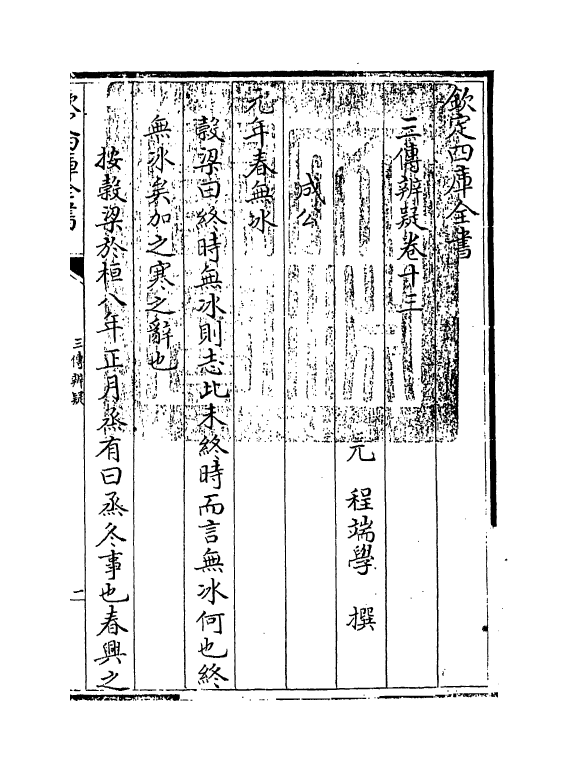 欽定四庫全書
三傳辨疑卷十三
元 程端學 撰
成公
元年春無冰
穀梁曰終時無冰則志此未終時而言無冰何也終
無冰矣加之寒之辭也
按穀梁於桓八年正月烝有曰烝冬事也春興之
三傳辨疑